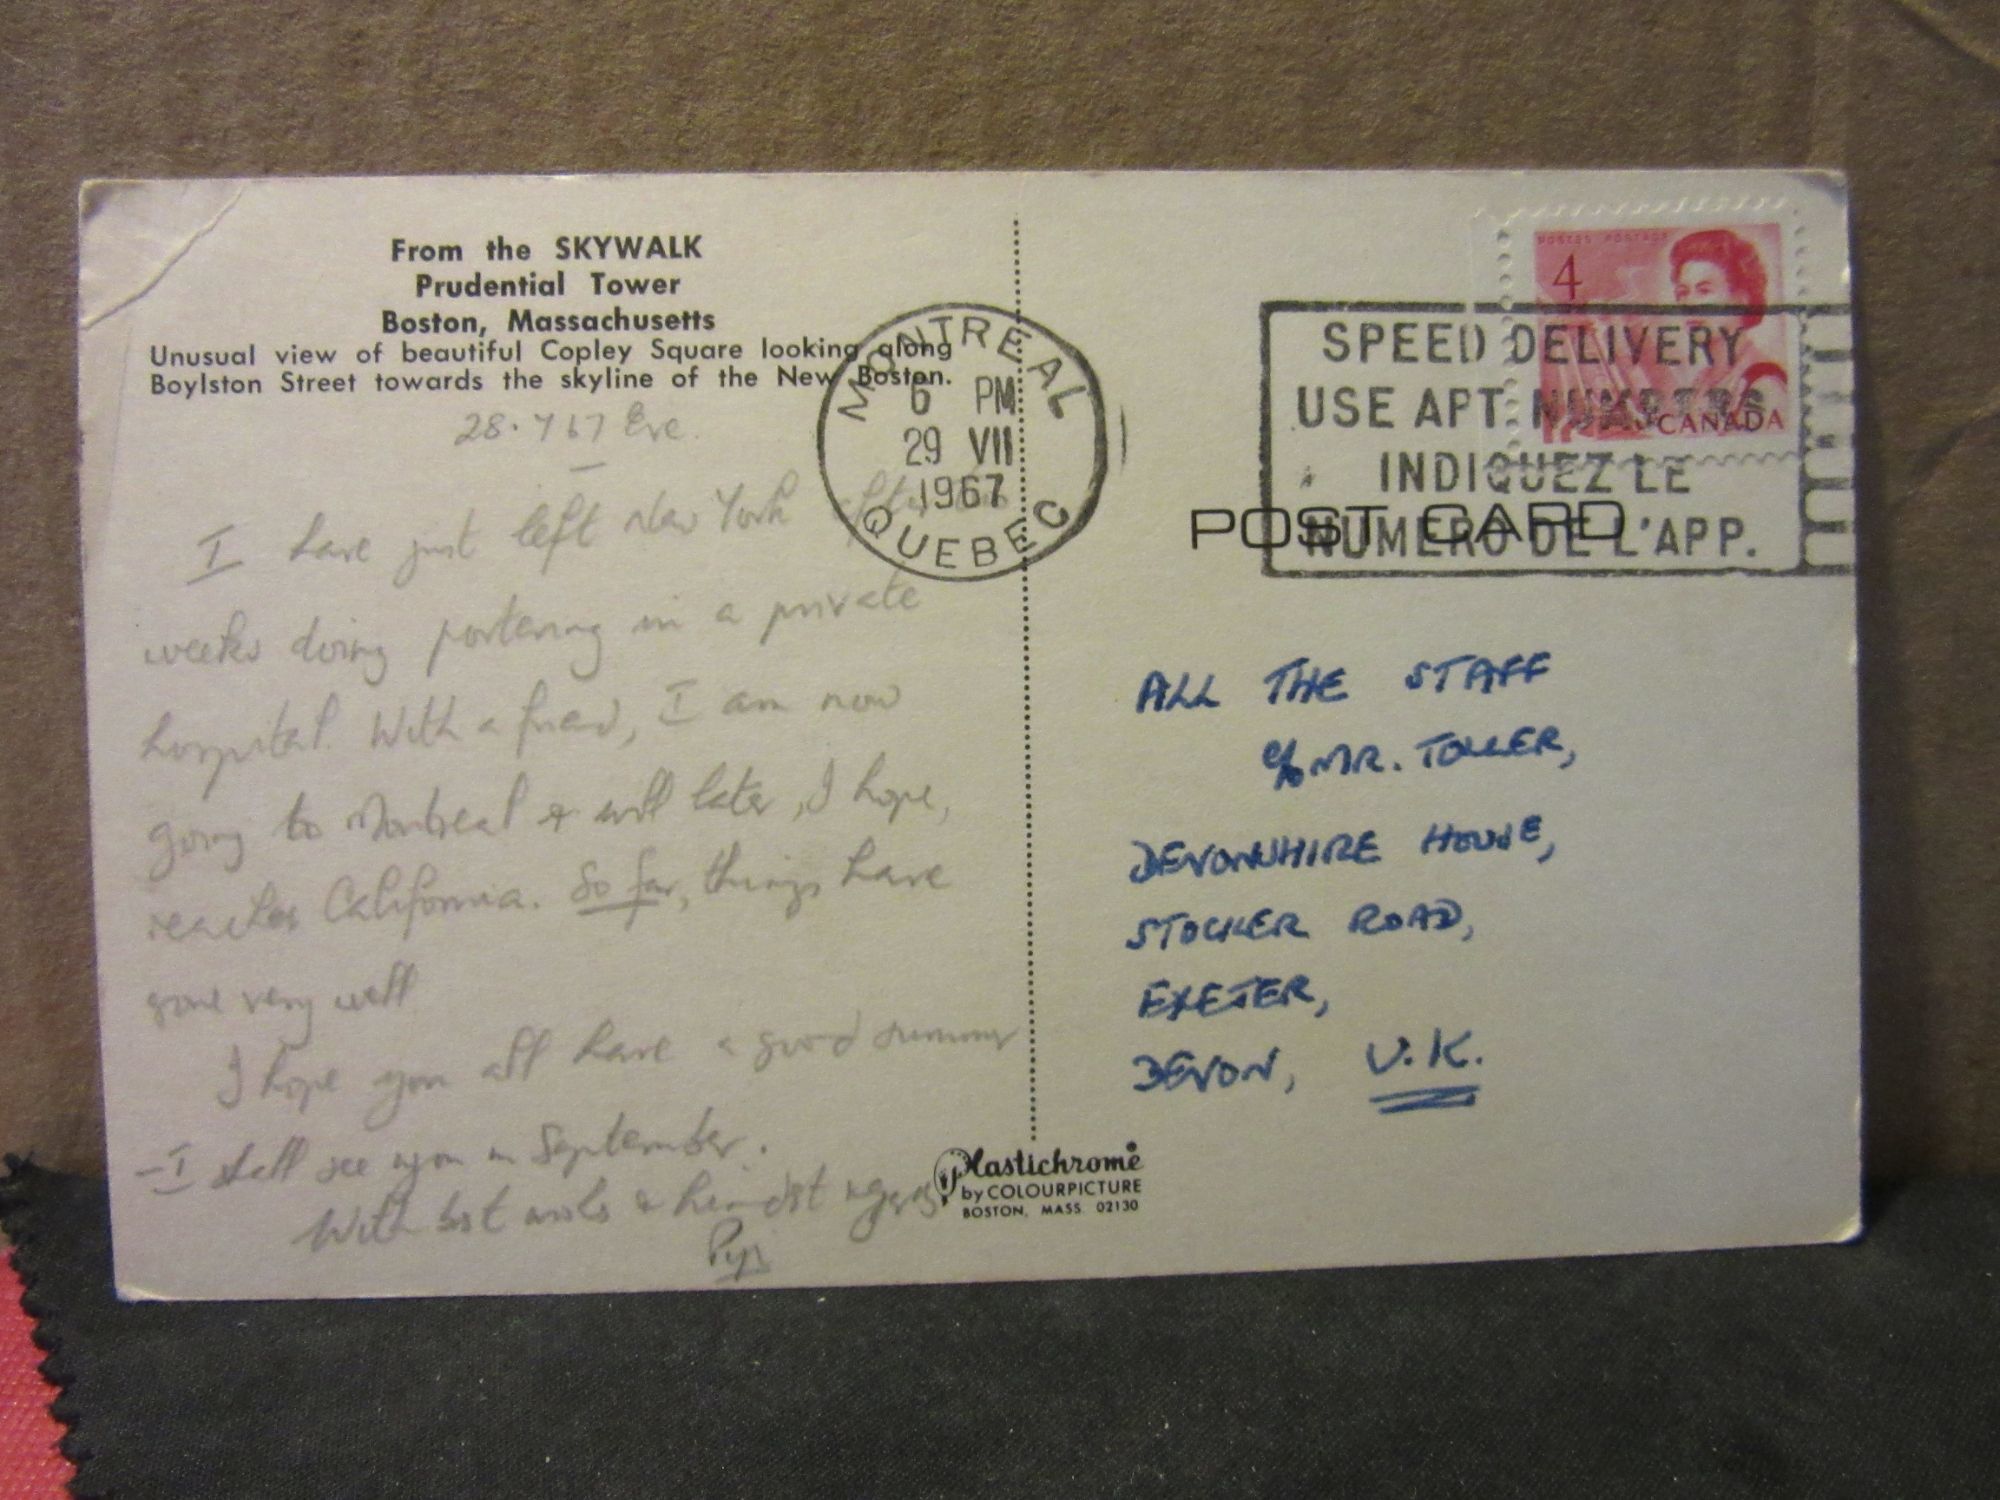 From the SKYWALK
Prudential Tower
Boston, Massachusetts
Unusual view of beautiful Copley Square looking along
Boylston Street towards the skyline of the New Boston.
28.7 67 Eve.
I have just left New York after
weeks doing portering in a private
hospital. With a friend, I am now
going to Montreal & will later, I hope,
reaches California. So far, things have
gone very well
I hope you all have a good summer
– I shall see you in September.
With best wishes & kindest regards
MONTREAL
6 PM
29 VII
1967
QUEBEC
POSTES POSTAGE
4
CANADA
SPEED DELIVERY
USE APT. NUMBERS
INDIQUEZ LE
NUMERO DE L'APP.
POST CARD
ALL THE STAFF
c/o MR. TOLLER,
DEVONSHIRE HOUSE,
STOCKER ROAD,
EXETER,
DEVON, U.K.
Plastichrome
by COLOURPICTURE
BOSTON, MASS. 02130